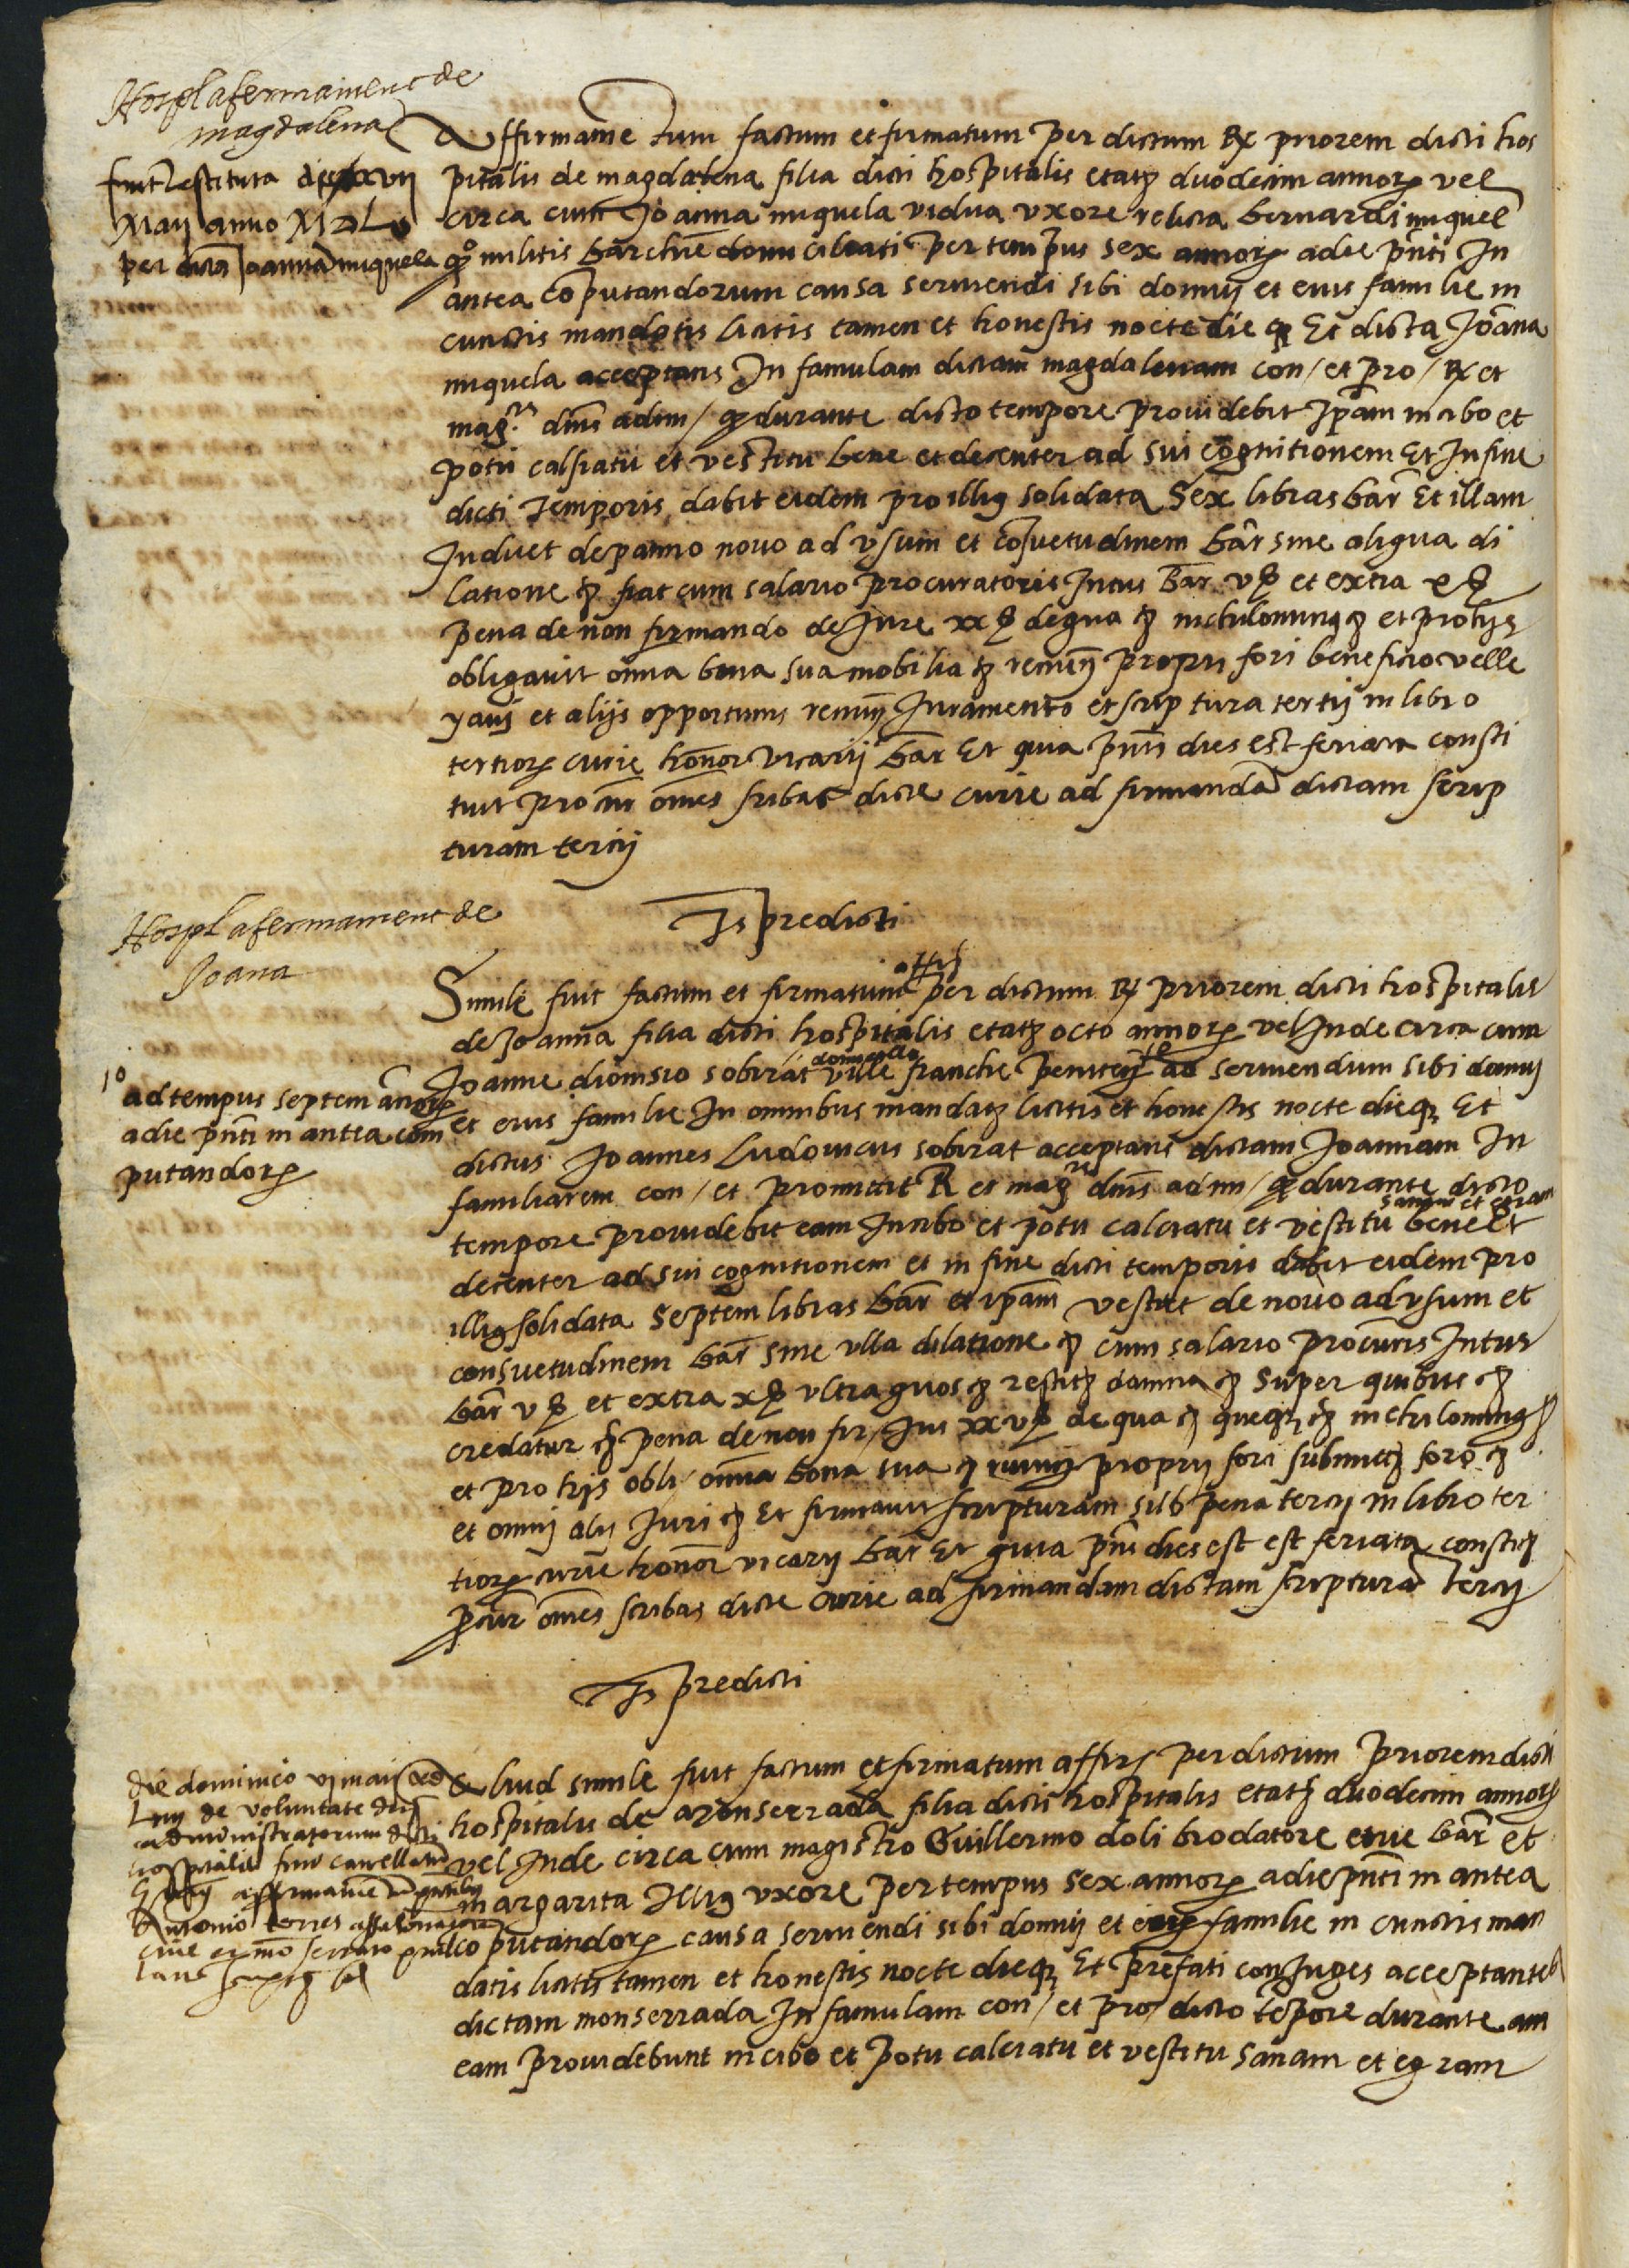 Hospl afermament de
magdalena
fuit restituta die xvii
Maij anno MDLv
per dictã Joannã miquela
Affirmame tum factum et firmatum per dictum Rx priorem dicti hos
pitalis de magdalena filia dicti hospitalis etatꝫ duodecim annorꝫ vel
circa cum Joanna miquela vidua vxore relicta bernardi miquel
qº militis barchne domiciliati per tempus sex annorꝫ a die pñti In
antea cõputandorum causa serviendi sibi domuj et eius familie in
cunctis mandatis licitis tamen et honestis nocte die qꝫ Et dicta Joãna
miquela acceptans In famulam dictam magdalenam con / et pro / Rx et
magcis dñis admi / qꝫ durante dicto tempore providebit Ipãm in cibo et
potu calsiatu et vestitu bene et decenter ad sui cognitionem Et In fine
dicti Temporis dabit eidem pro illiꝰ solidata Sex libras bar̃ Et illam
Induet de panno novo ad vsum et cõsuetudinem bar̃ sine aliqua di
latione ꝫ fiat cum salario procuratoris Intus bar̃ v ß et extra x ß
pena de non firmando de Jure xx ß de qua ꝫ et pro hijs
obligavit omnia bona sua mobilia ꝫ renũtꝫ proprij fori beneficio velle
yanj et alijs opportunis renũtꝫ Juramento et scriptura tertij in libro
tertiorꝫ curie honor vicarij bar̃ Et quia pñs dies est feriata consti
tuit procur̃ omẽs scribas dicte curie ad firmandã dictam scrip
turam tercij
Hospl afermament de
Joana
Ts predicti
Simile fuit factum et firmatum affirꝫ per dictum Rx priorem dicti hospitalis
de Joanna filia dicti hospitalis etatꝫ octo annorꝫ vel Inde circa cum
Joanne dionisio sobirat domicello ville franche peniteñ 1º ad serviendum sibi domuj
1º
ad tempus septem ãnorꝫ
a die pñti in antea com
putandorꝫ
et eius familie In omnibus mandatꝫ licitis et honestis nocte dieqꝫ Et
dictus Joannes Ludovicus sobirat acceptans dictam Joannam In
familiarem con / et promittit R et magcis dñis admi / qꝫ durante dicto
tempore providebit eam In cibo et potu calciatu et vestitu sanam et egram bene et
decenter ad sui cognitionem et in fine dicti temporis dabit eidem pro
illiꝰ solidata Septem libras bar̃ et ipãm vestiet de novo ad vsum et
consuetudinem bar̃ sine vlla dilatione ꝫ cum salario procuris Intus
bar̃ v ß et extra x ß vltra quos ꝫ restitꝫ damna ꝫ Super quibus ꝫ
credatur ꝫ pena de non fir / Jus xxv ß de qua ꝫ
et pro hijs obli / omnia bona sua ꝫ renũtꝫ proprij fori submittꝫ foro ꝫ
et omnj alij Juri ꝫ Et firmavit scripturam sub pena tercij in libro ter
tiorꝫ curie honor vicarij bar̃ Et quia pñs dies est est feriata constitꝫ
pcur̃ omẽs scribas dicte curie ad firmandam dictam scripturã Tercij
Ts predicti
die dominico vj maij
Lviij de voluntate dñorꝫ
administratorum dicti
hospitalis fuit cancellatũ
affirmame
Antonio torres
cive et seriato
Aliud simile fuit factum et firmatum affirꝫ per dictum Priorem dicti
hospitalis de monserrada filia dicti hospitalis etatꝫ duodecim annorꝫ
vel Inde circa cum magistro Guillermo doli brodatore cive bar̃ et
margarita Illiꝰ vxore per tempus sex annorꝫ a die pñti in antea
cõputandorꝫ causa serviendi sibi domuj et eius familie in cunctis man
datis licitis tamen et honestis nocte dieqꝫ Et prefati conJuges acceptantes
dictam monserrada In famulam con / et pro / dicto tẽpore durante
eam providebunt in cibo et potu calciatu et vestitu sanam et egram